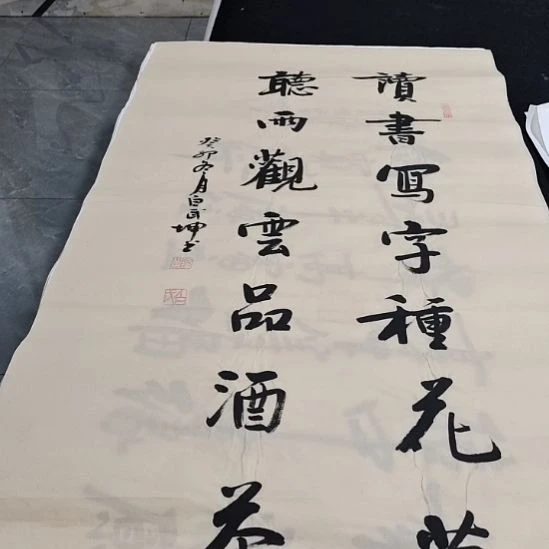 讀書寫字種花草
聽雨觀雲品酒茶
癸卯冬月白民坤書